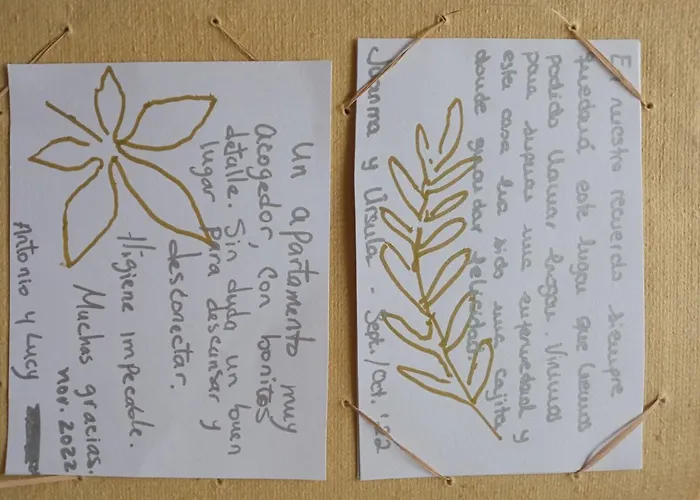 En nuestro recuerdo siempre
quedará este lugar que hemos
podido llamar hogar. Vinimos
para superar una enfermedad y
esta casa ha sido una cajita
donde guardar felicidad.
Juanma y Úrsula - Sept./Oct. '22
Un apartamento muy
acogedor, con bonitos
detalle. Sin duda un buen
lugar para descansar y
desconectar.
Higiene impecable.
Muchas gracias.
nov. 2022
Antonio y Lucy